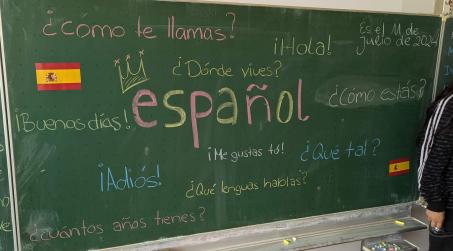 ¿cómo te llamas?
¡Hola!
Es el 11 de
julio de 2024
¿Dónde vives?
¿Cómo estás?
español
¡Buenos días!
¡Me gustas tú!
¿Qué tal?
¡Adiós!
¿Qué lenguas hablas?
¿cuántos años tienes?